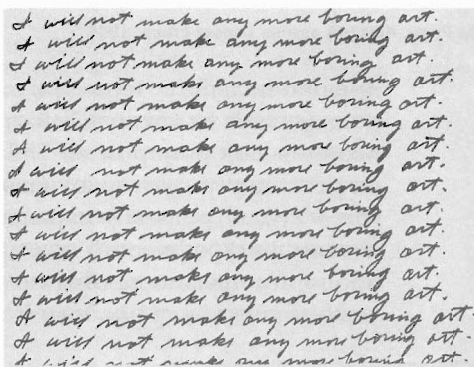 I will not make any more boring art.
I will not make any more boring art.
I will not make any more boring art.
I will not make any more boring art.
I will not make any more boring art.
I will not make any more boring art.
I will not make any more boring art.
I will not make any more boring art.
I will not make any more boring art.
I will not make any more boring art.
I will not make any more boring art.
I will not make any more boring art.
I will not make any more boring art.
I will not make any more boring art.
I will not make any more boring art.
I will not make any more boring art.
I will not make any more boring art.